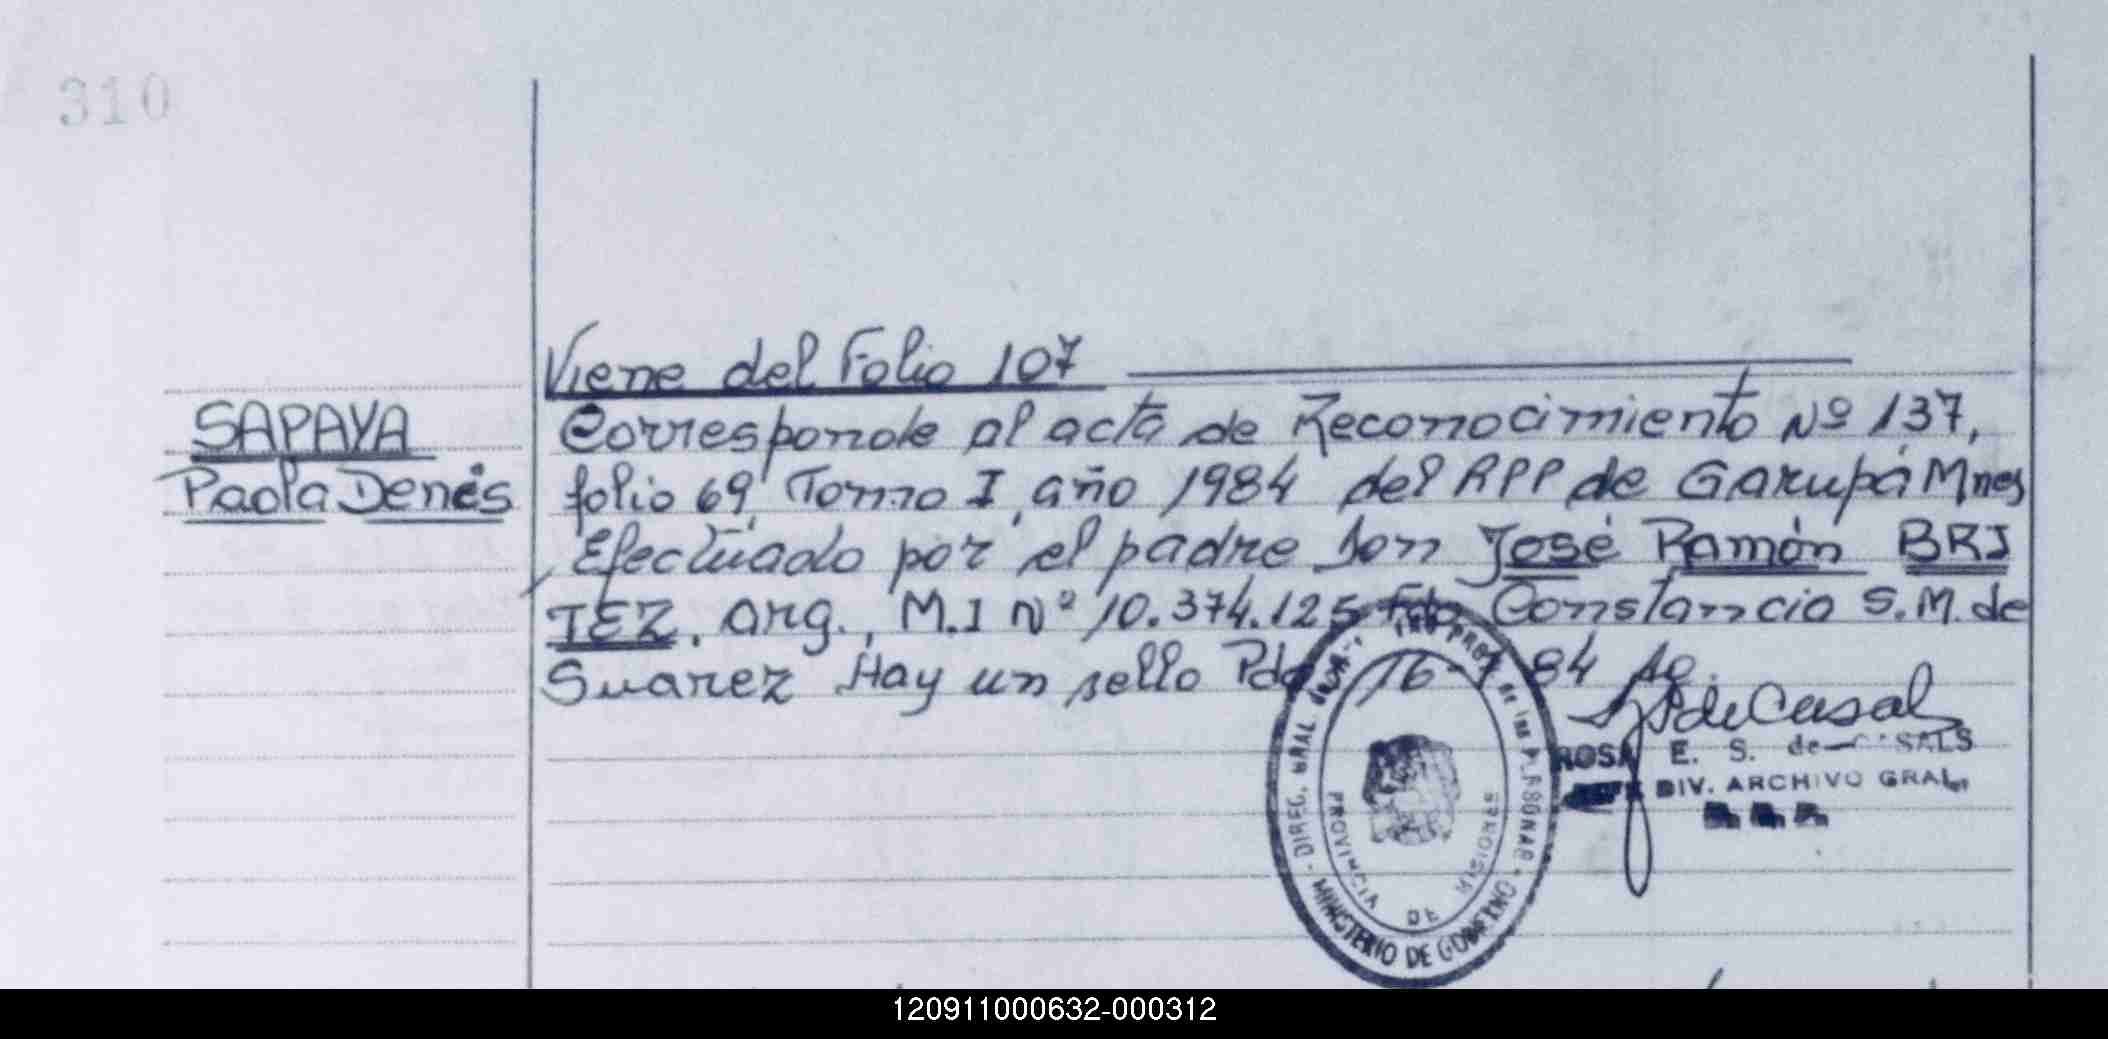 310
Viene del Folio 107
SAPAYA
Paola Denés
Corresponde al acta de Reconocimiento Nº 137,
folio 69, Tomo I, año 1984 del RPP de Garupá Mnes
Efectuado por el padre don José Ramón BRI
TEZ. arg., M.I Nº 10.374.125 Fdo Constancio S.M. de
Suarez Hay un sello Pdas 16- 84
ROSA E. S. de CASALS
DIV. ARCHIVO GRAL.
DIREC. GRAL
de las PERSONAS
PROVINCIA DE MISIONES
MINISTERIO DE GOBIERNO
120911000632-000312